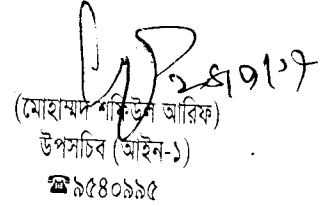 (মোহাম্মদ শফিউল আরিফ)
উপসচিব (আইন-১)
☎৯৫৪০৯৯৫